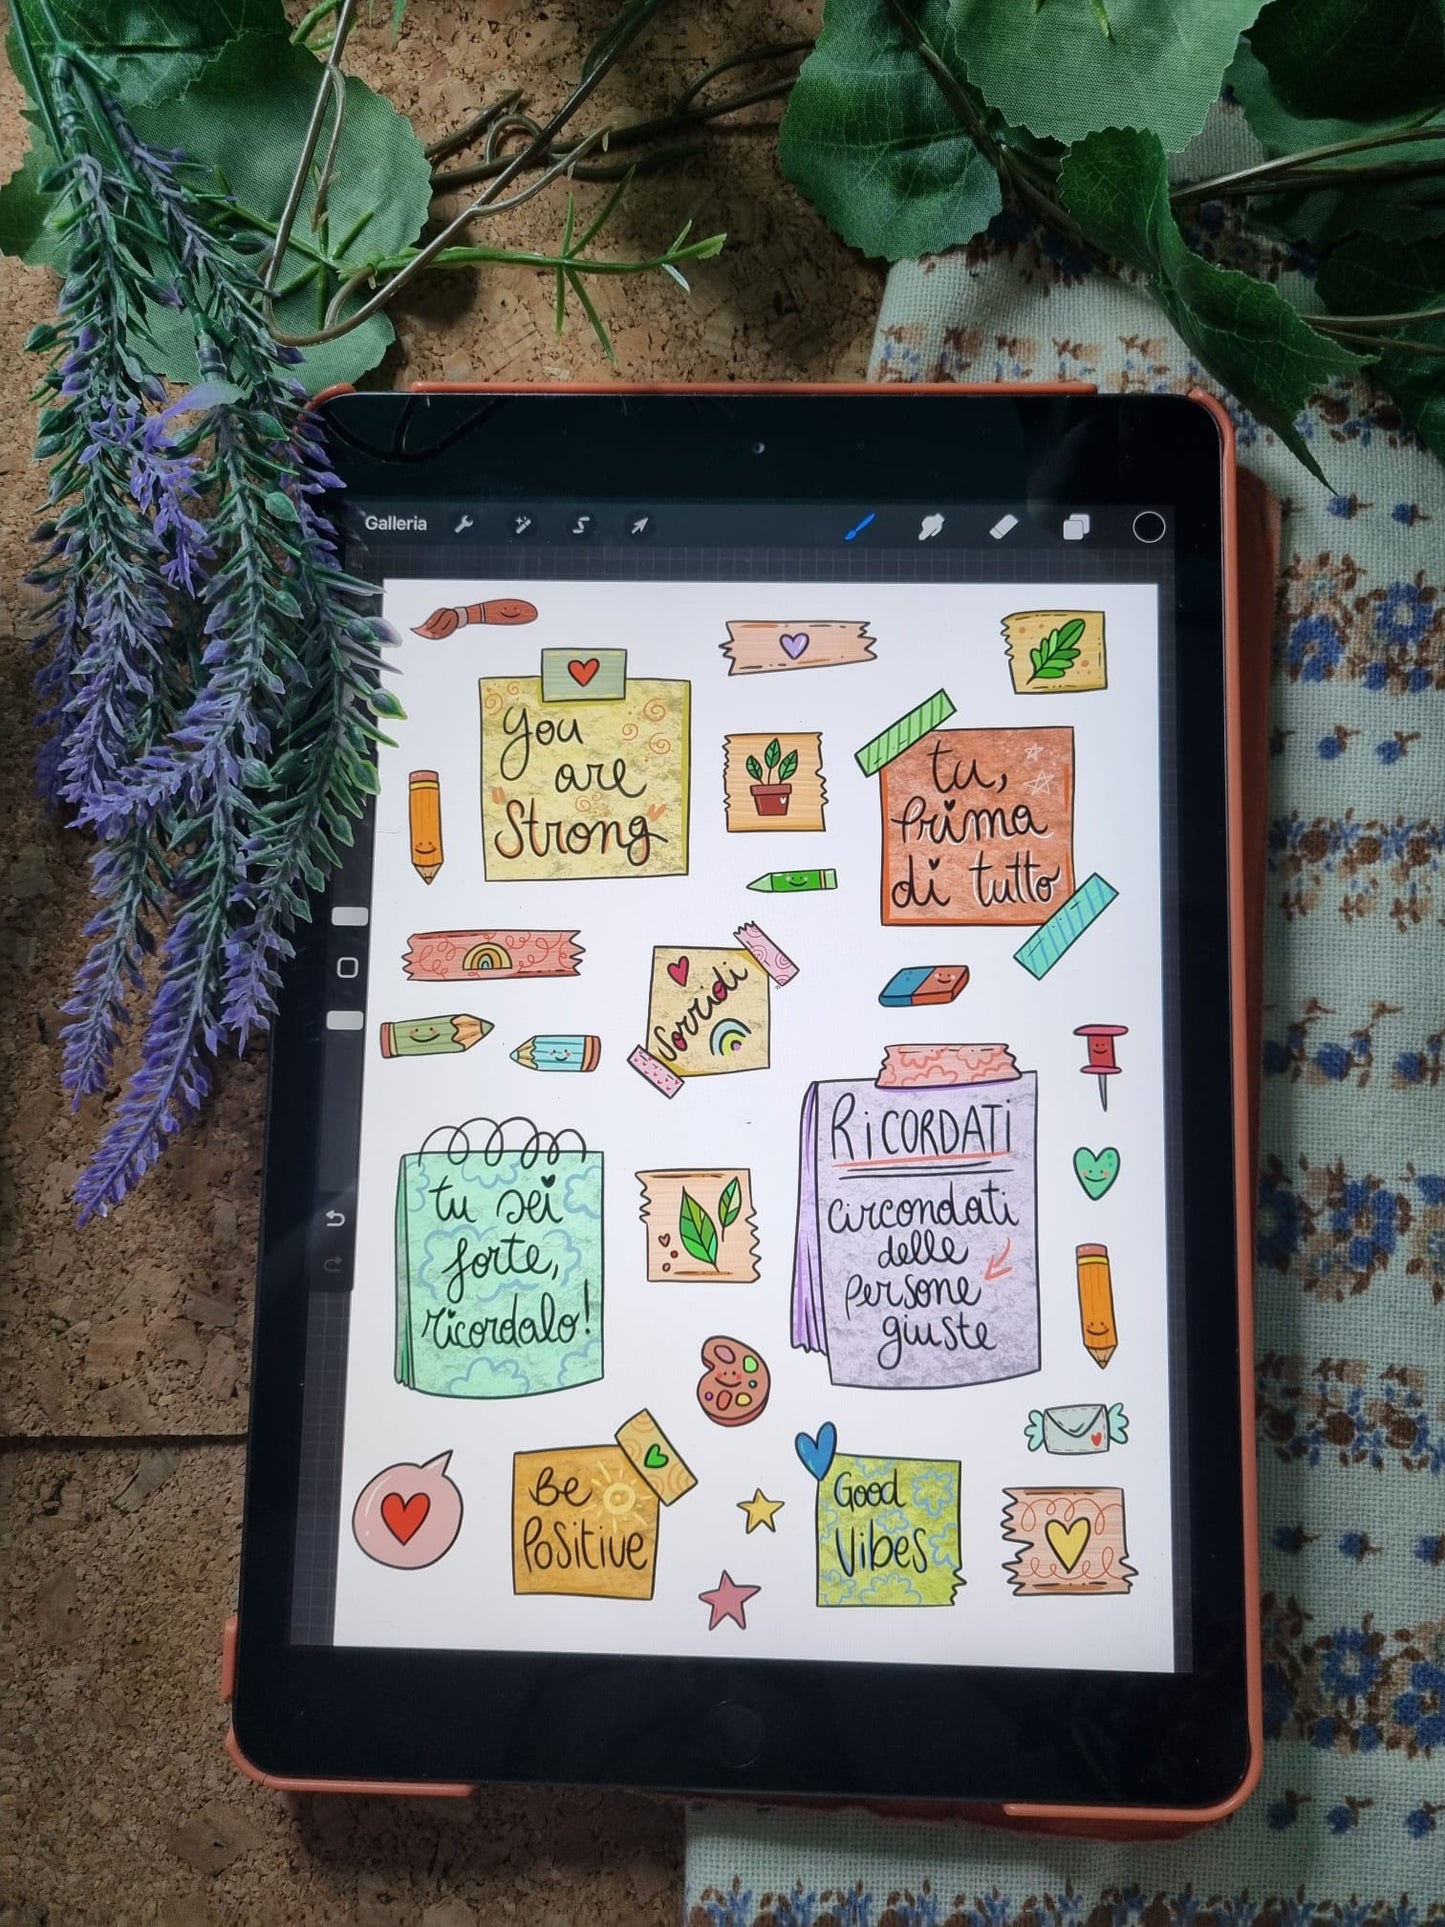 Galleria
you
are
Strong
tu,
Prima
di tutto
Sorridi
RiCORDATi
circondati
delle
Persone
giuste
tu sei
forte,
ricordalo!
Be
Positive
Good
Vibes